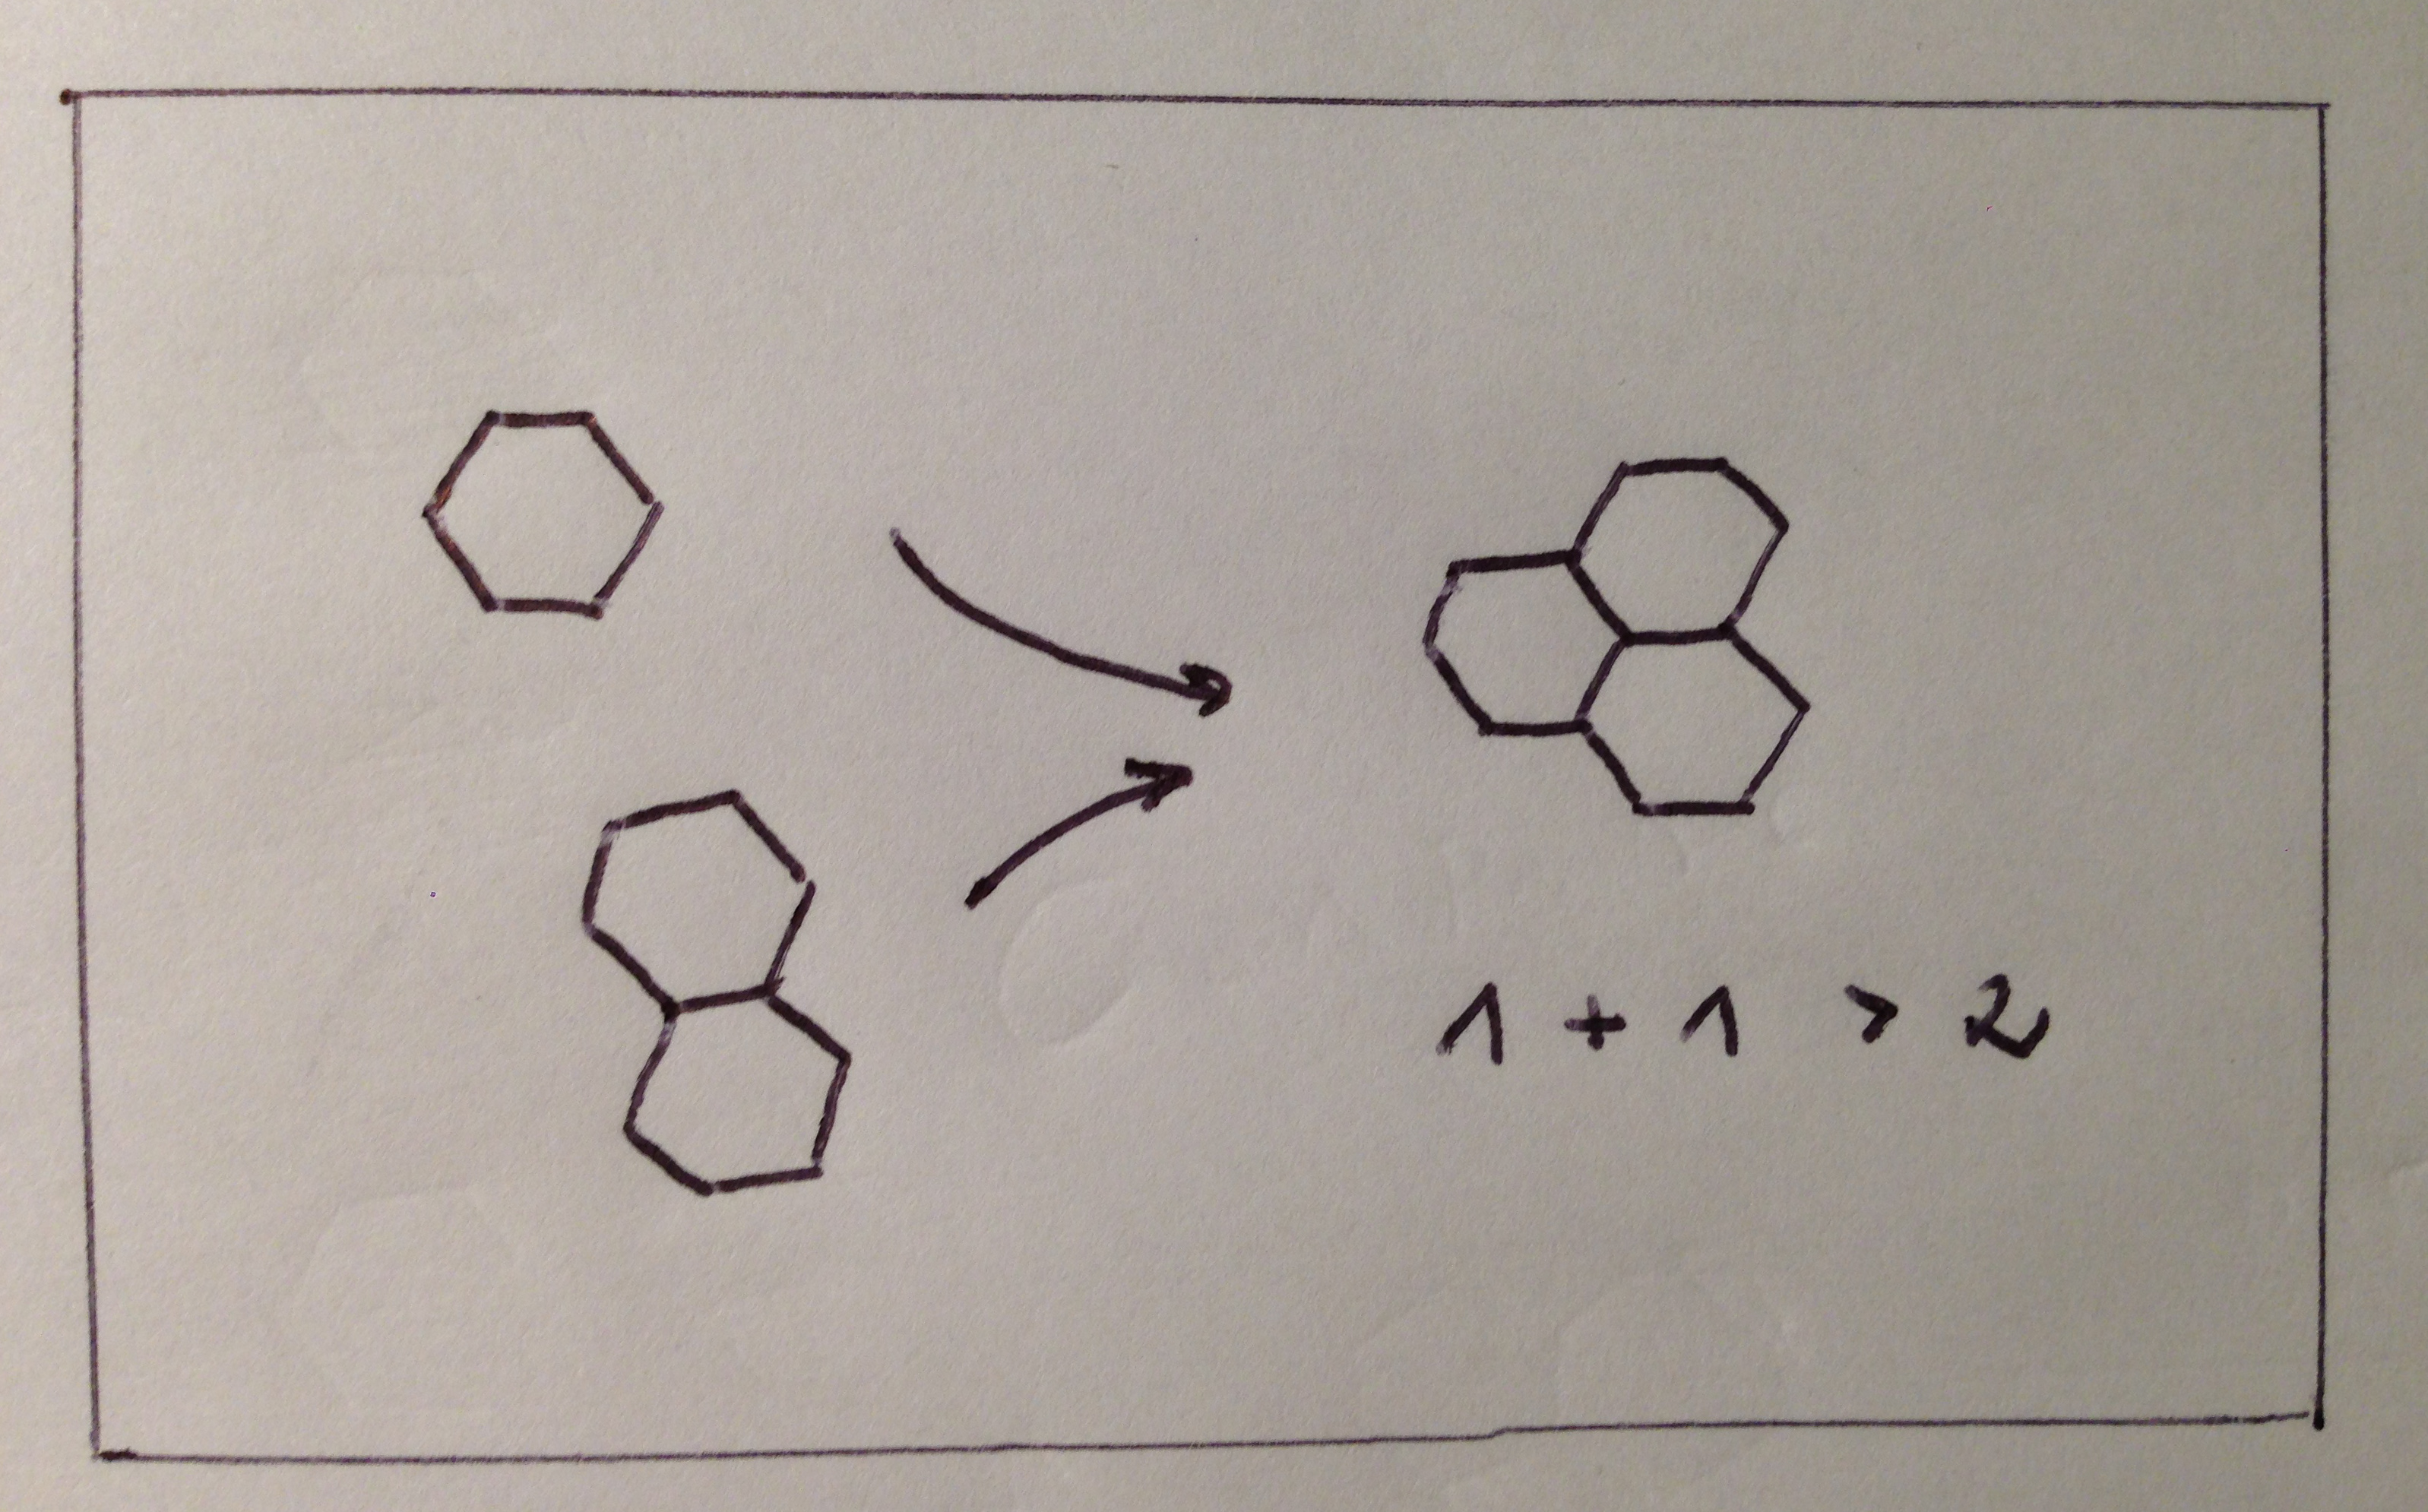 1 + 1 > 2